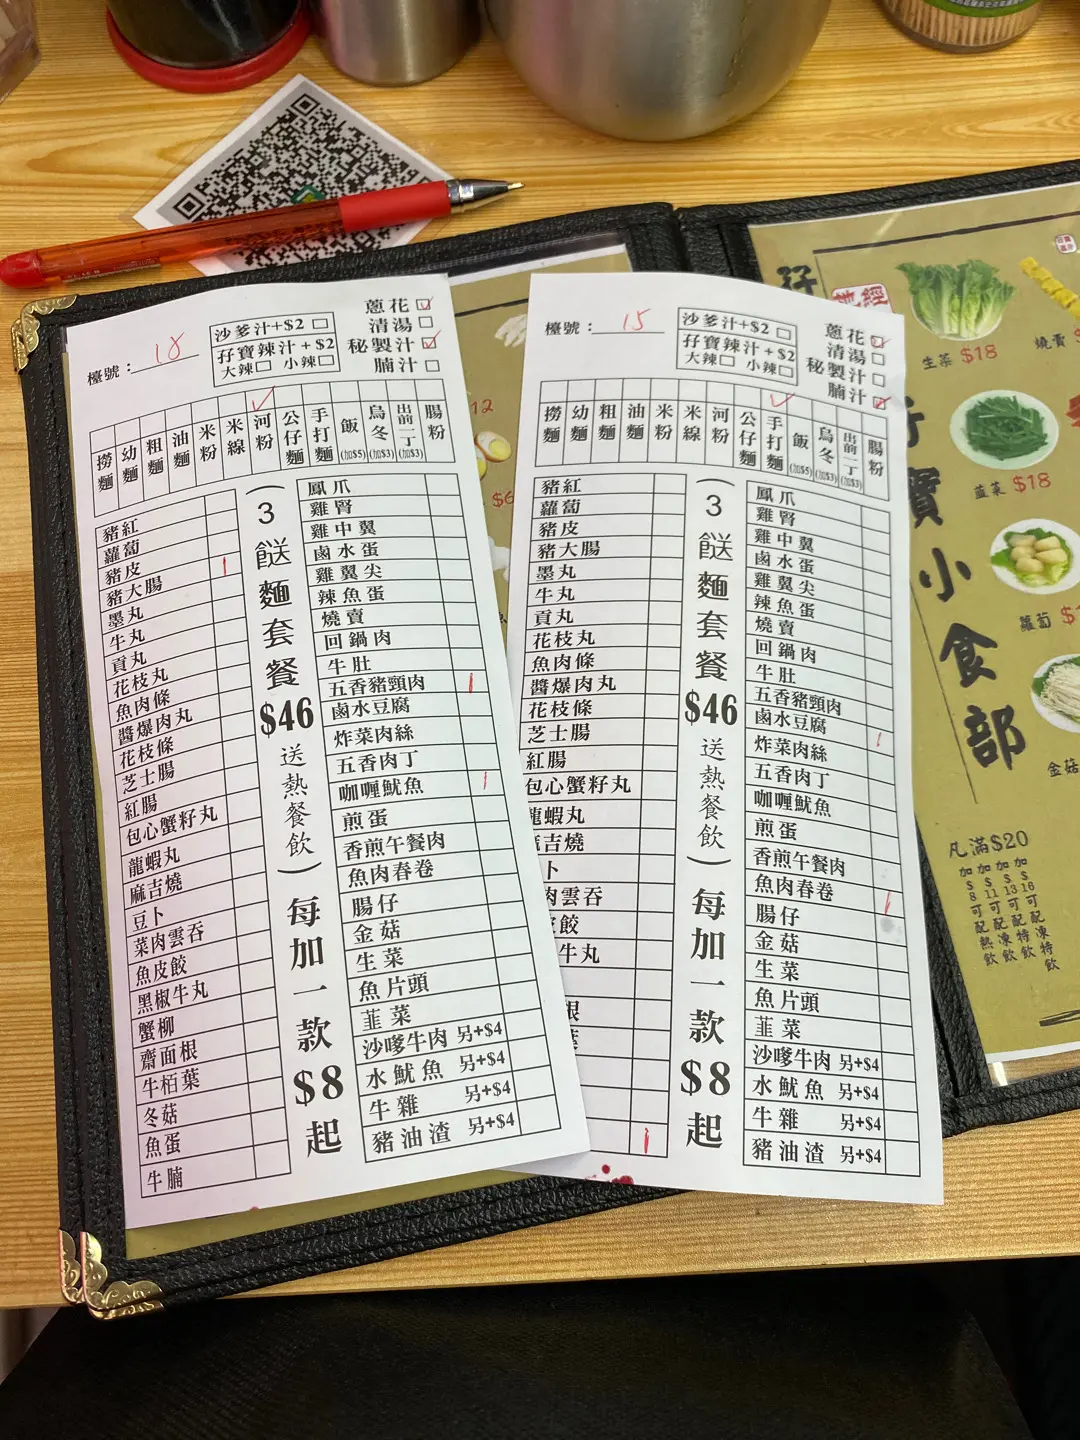 檯號：18
沙爹汁+$2
孖寶辣汁+$2
大辣 小辣
蔥花
清湯
秘製汁
腩汁
撈麵
幼麵
粗麵
油麵
米粉
米線
河粉
公仔麵
手打麵
飯(加$5)
烏冬(加$3)
出前一丁(加$3)
腸粉
豬紅
蘿蔔
豬皮
豬大腸
墨丸
牛丸
貢丸
花枝丸
魚肉條
醬爆肉丸
花枝條
芝士腸
紅腸
包心蟹籽丸
龍蝦丸
麻吉燒
豆卜
菜肉雲吞
魚皮餃
黑椒牛丸
蟹柳
齋面根
牛栢葉
冬菇
魚蛋
牛腩
（3餸麵套餐$46送熱餐飲）每加一款$8起
鳳爪
雞腎
雞中翼
鹵水蛋
雞翼尖
辣魚蛋
燒賣
回鍋肉
牛肚
五香豬頸肉
鹵水豆腐
炸菜肉絲
五香肉丁
咖喱魷魚
煎蛋
香煎午餐肉
魚肉春卷
腸仔
金菇
生菜
魚片頭
韮菜
沙嗲牛肉 另+$4
水魷魚 另+$4
牛雜 另+$4
豬油渣 另+$4
檯號：15
沙爹汁+$2
孖寶辣汁+$2
大辣 小辣
蔥花
清湯
秘製汁
腩汁
撈麵
幼麵
粗麵
油麵
米粉
米線
河粉
公仔麵
手打麵
飯(加$5)
烏冬(加$3)
出前一丁(加$3)
腸粉
豬紅
蘿蔔
豬皮
豬大腸
墨丸
牛丸
貢丸
花枝丸
魚肉條
醬爆肉丸
花枝條
芝士腸
紅腸
包心蟹籽丸
龍蝦丸
麻吉燒
卜
肉雲吞
皮餃
牛丸
根
（3餸麵套餐$46送熱餐飲）每加一款$8起
鳳爪
雞腎
雞中翼
鹵水蛋
雞翼尖
辣魚蛋
燒賣
回鍋肉
牛肚
五香豬頸肉
鹵水豆腐
炸菜肉絲
五香肉丁
咖喱魷魚
煎蛋
香煎午餐肉
魚肉春卷
腸仔
金菇
生菜
魚片頭
韮菜
沙嗲牛肉 另+$4
水魷魚 另+$4
牛雜 另+$4
豬油渣 另+$4
寶小食部
生菜 $18
燒賣
韮菜 $18
蘿蔔
金菇
凡滿$20
加$8可配熱飲
加$11可配凍飲
加$13可配特飲
加$16可配凍特飲
12
$6